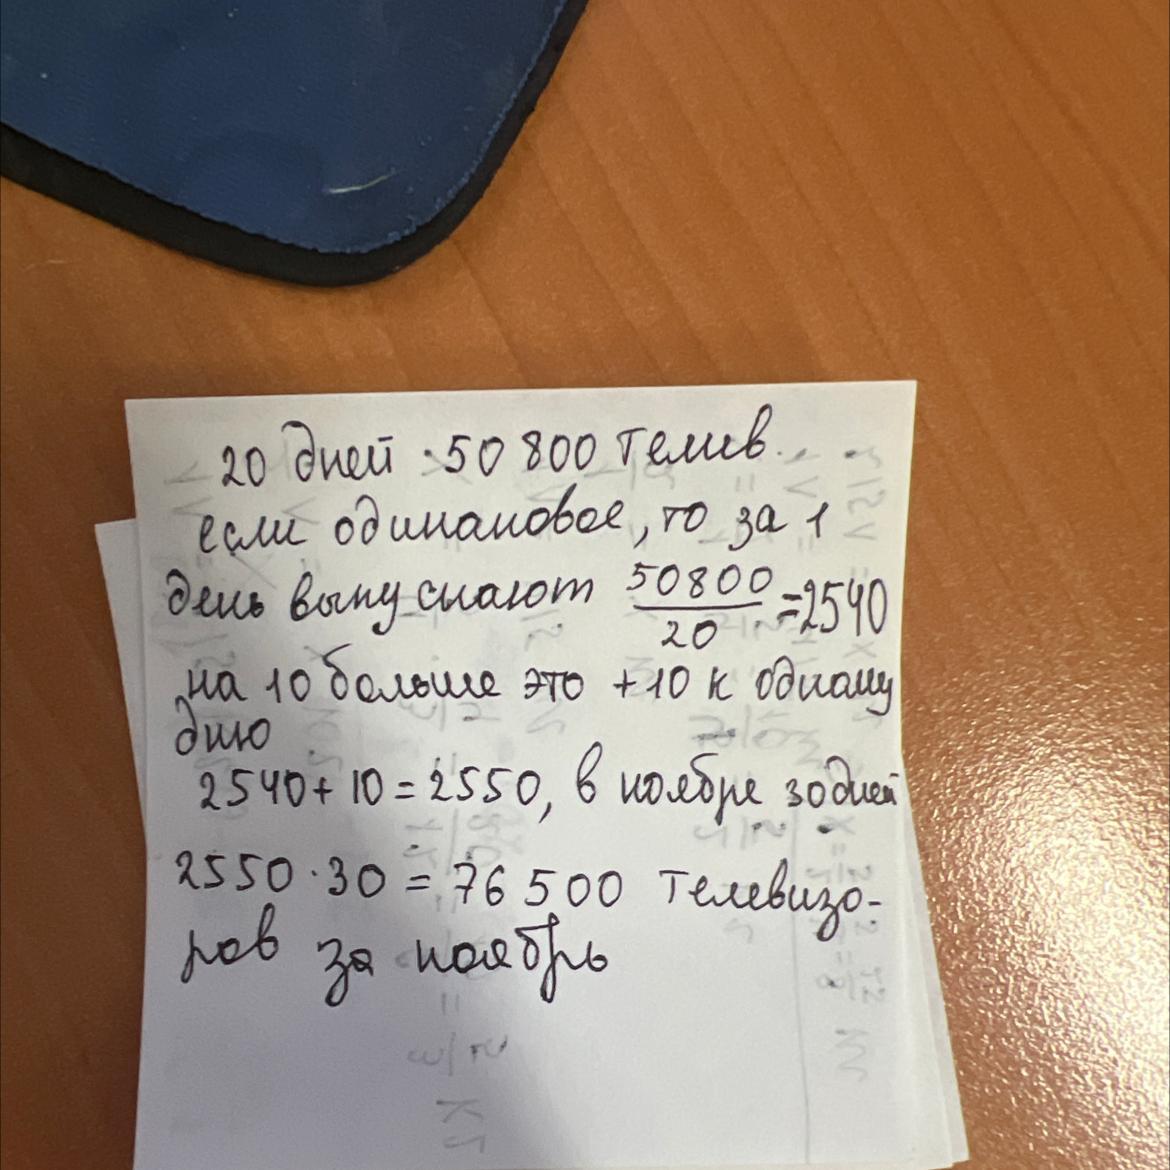 20 дней • 50 800 телив.
если одинановое, то за 1
день выпускают 50800/20 =2540
на 10 больше это +10 к одному
дню
2540+10=2550, в ноябре 30 дней
2550·30 = 76 500 телевизо-
ров за ноябрь